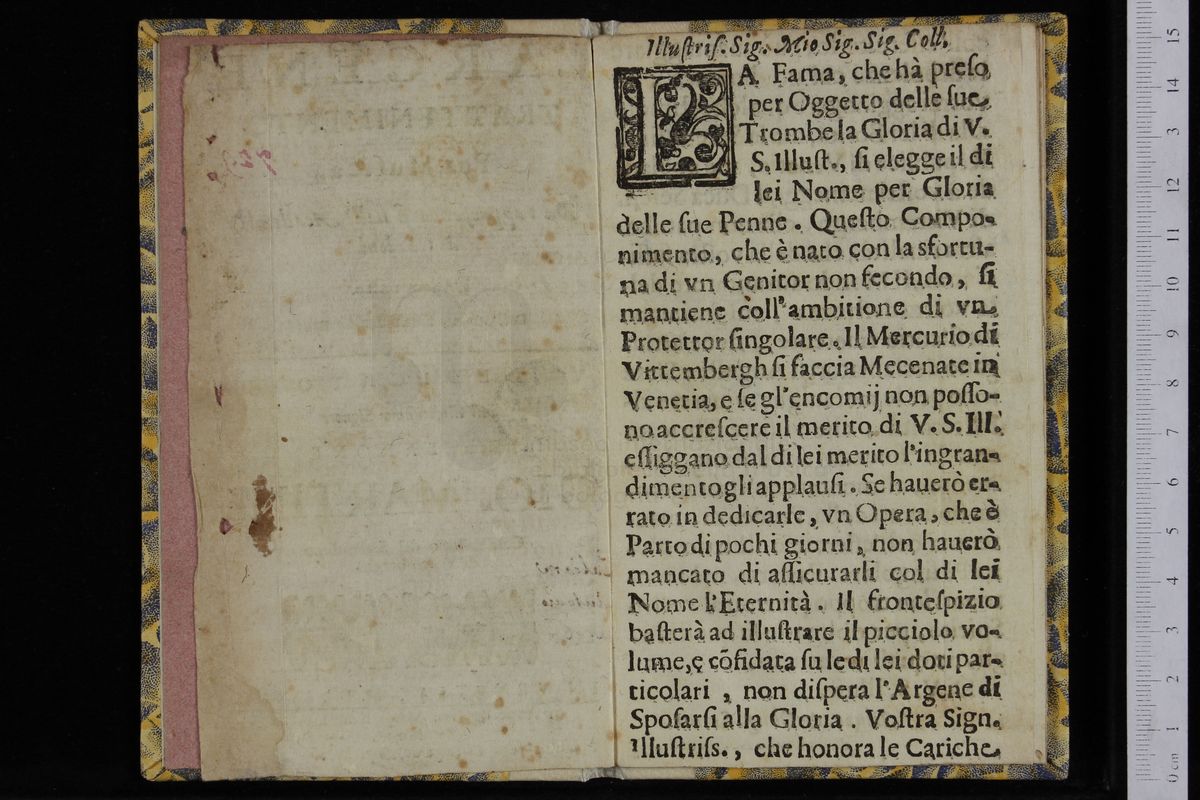 Illuſtriſ. Sig. Mio Sig. Sig. Coll.
LA Fama, che hà preſo
per Oggetto delle ſue
Trombe la Gloria di V.
S. Illuſt., ſi elegge il di
lei Nome per Gloria
delle ſue Penne. Queſto Compo-
nimento, che è nato con la sfortu-
na di vn Genitor non fecondo, ſi
mantiene coll'ambitione di vn
Protettor ſingolare. Il Mercurio di
Vittembergh ſi faccia Mecenate in
Venetia, e ſe gl'encomij non poſſo-
no accreſcere il merito di V. S. Ill.
eſſiggano dal di lei merito l'ingran-
dimento gli applauſi. Se hauerò er-
rato in dedicarle, vn Opera, che è
Parto di pochi giorni, non hauerò
mancato di aſſicurarli col di lei
Nome l'Eternità. Il fronteſpizio
baſterà ad illuſtrare il picciolo vo-
lume, e cõfidata ſu le di lei doti par-
ticolari, non diſpera l'Argene di
Spoſarſi alla Gloria. Voſtra Sign.
Illuſtriſs., che honora le Cariche
0 cm 1 2 3 4 5 6 7 8 9 10 11 12 13 14 15